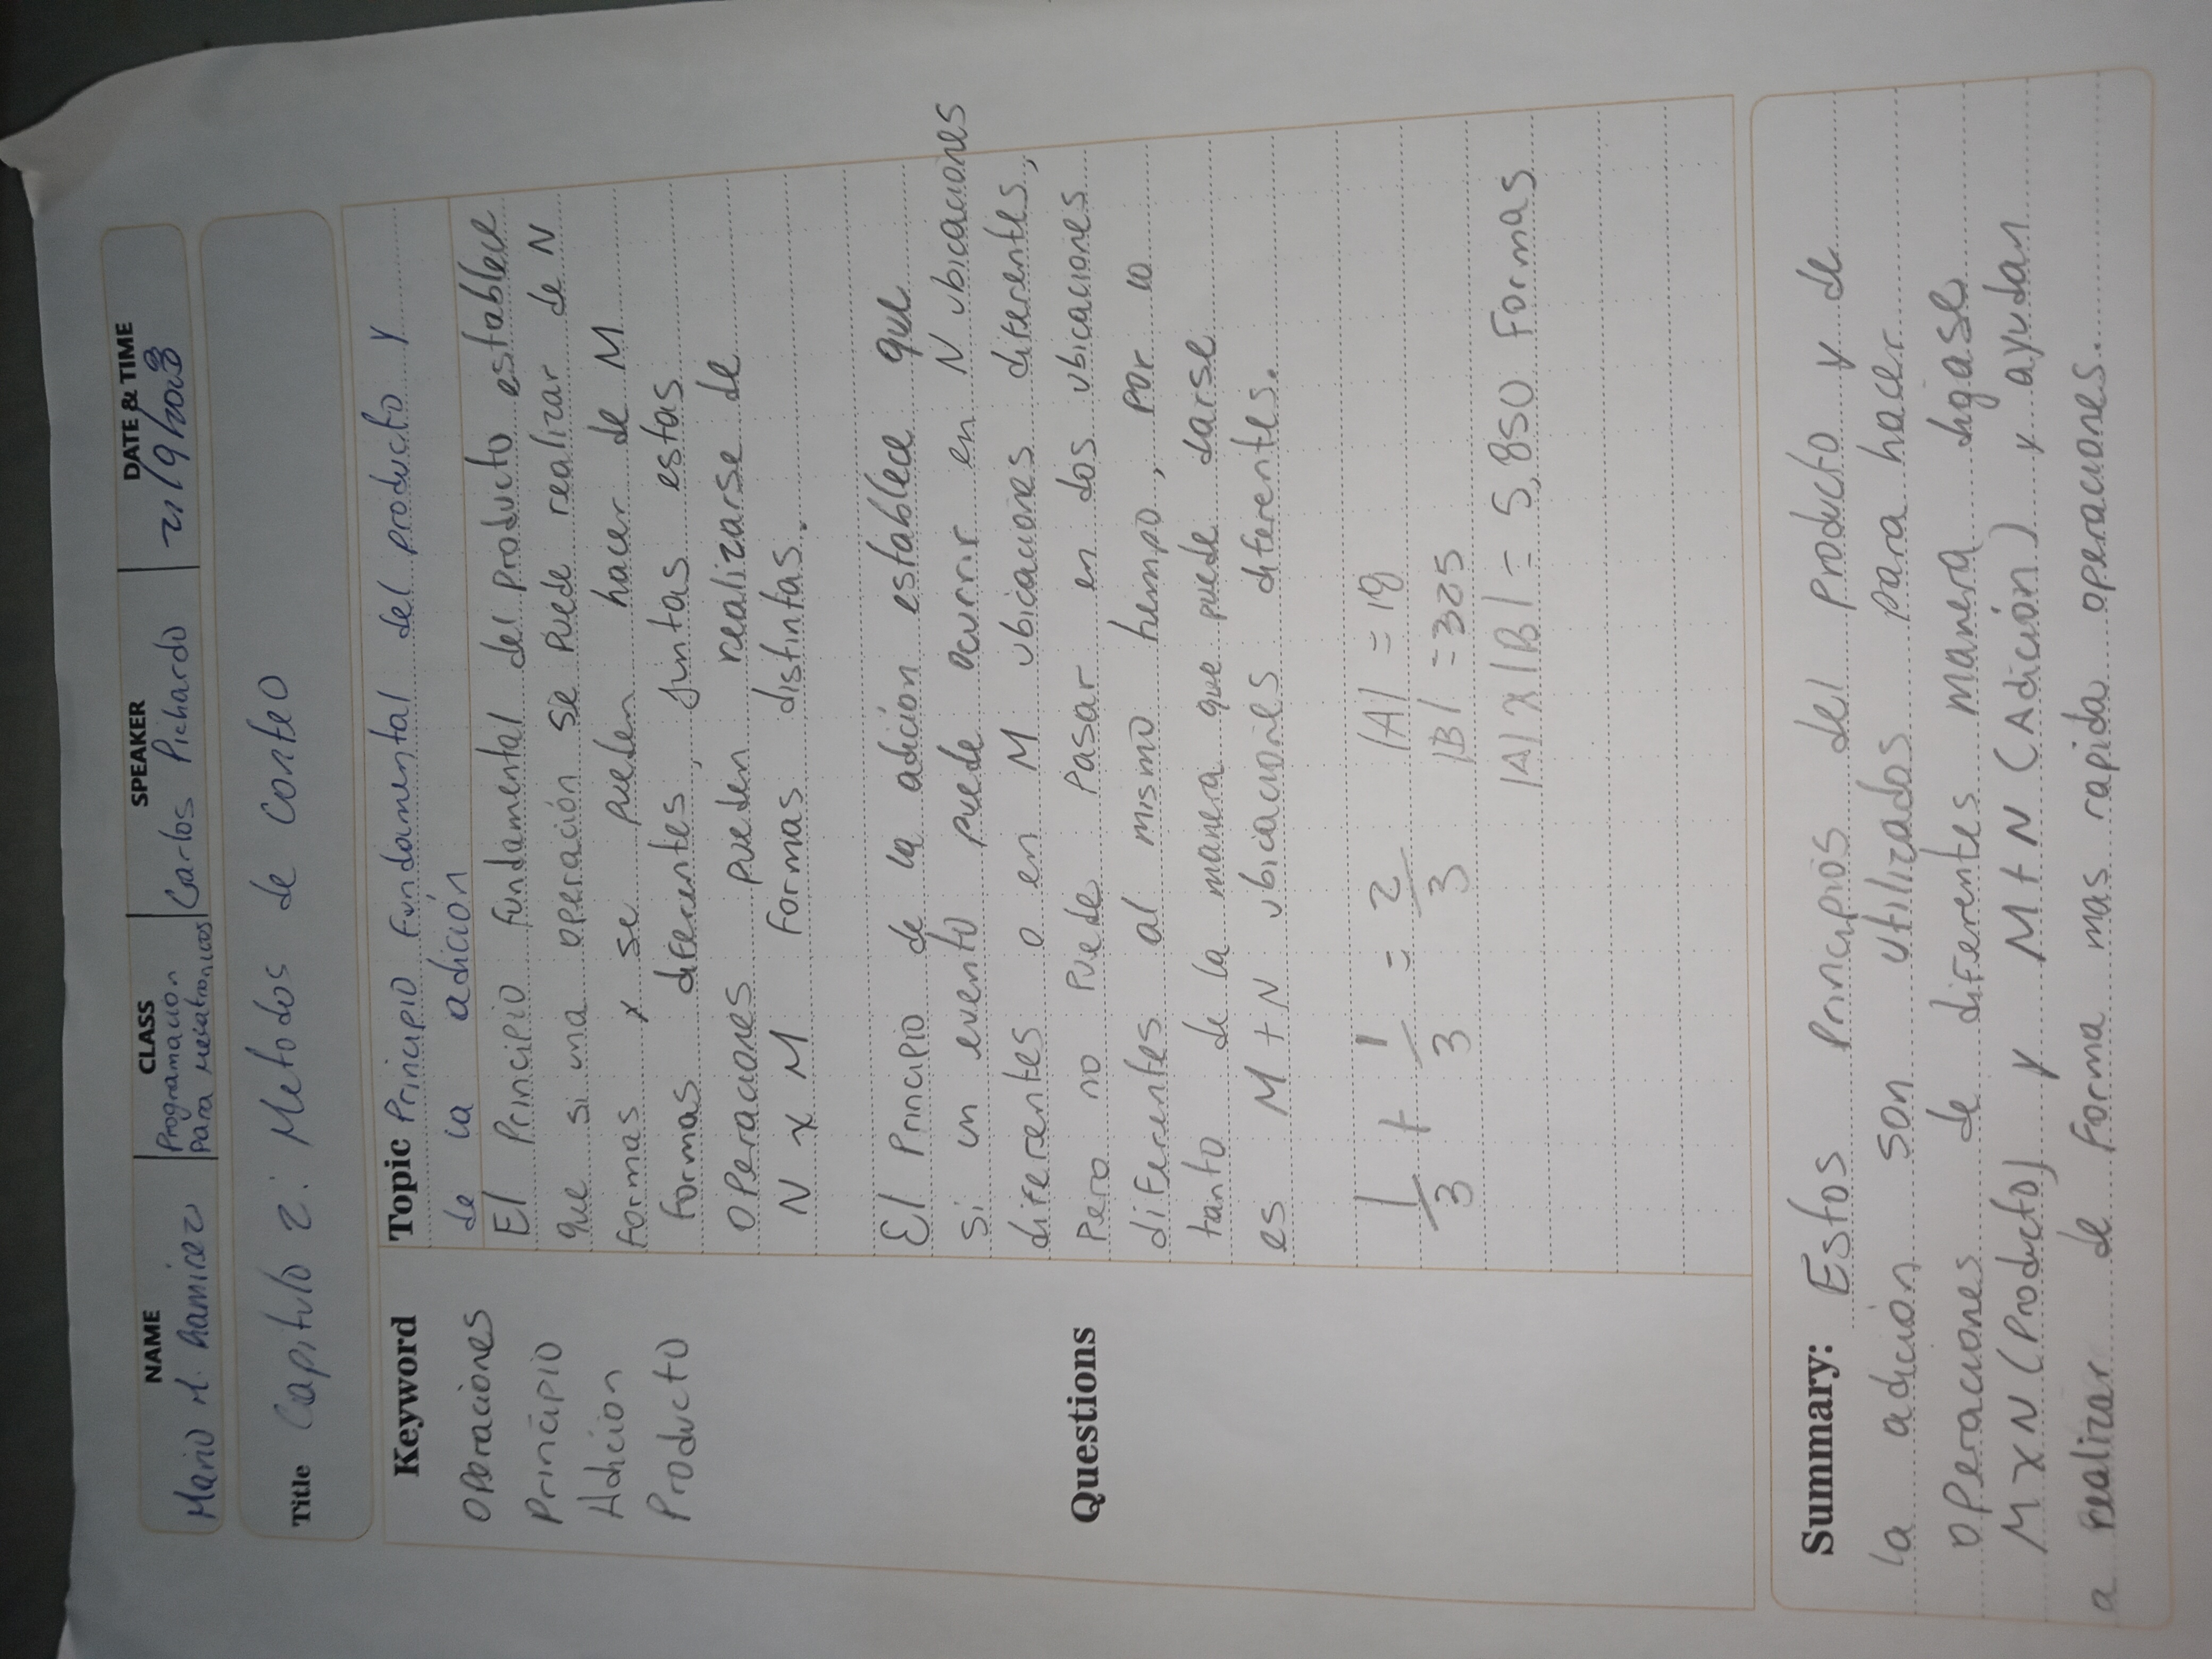 NAME CLASS SPEAKER DATE & TIME
Mario A. Ramirez Programacion Para Mecatronicos Carlos Pichardo 21/9/2023
Title Capitulo 2: Metodos de Conteo
Keyword
Operaciones
Principio
Adicion
Producto
Questions
Topic Principio fundamental del producto y
de la adición
El Principio fundamental del producto establece
que si una operación se puede realizar de N
formas y se pueden hacer de M
formas diferentes, juntas estas
operaciones pueden realizarse de
N x M formas distintas.
El Principio de la adición establece que
si un evento puede ocurrir en N ubicaciones
diferentes o en M ubicaciones diferentes,
Pero no puede Pasar en dos ubicaciones
diferentes al mismo tiempo, por lo
tanto de la manera que puede darse
es M + N ubicaciones diferentes.
1/3 + 1/3 = 2/3 |A| = 18
|B| = 325
|A| x |B| = 5,850 Formas
Summary: Estos Principios del producto y de
la adición son utilizados para hacer
operaciones de diferentes manera digase
M x N (Producto) y M + N (Adición) y ayudan
a realizar de forma mas rapida operaciones.